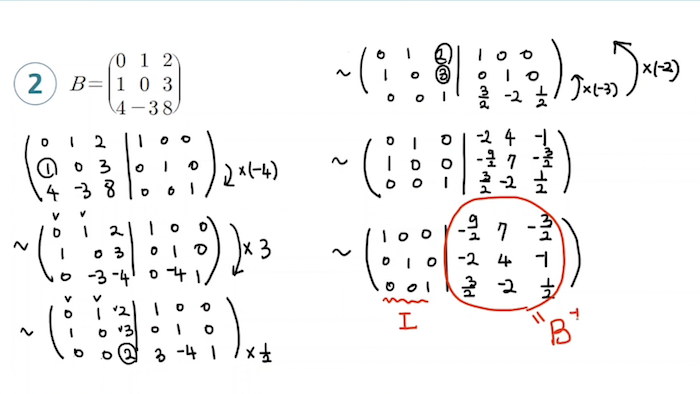 2 B= (0 1 2
1 0 3
4 −3 8)
(0 1 2 | 1 0 0
1 0 3 | 0 1 0
4 -3 8 | 0 0 1) ×(-4)
~ (0 1 2 | 1 0 0
1 0 3 | 0 1 0
0 -3 -4 | 0 -4 1) × 3
~ (0 1 2 | 1 0 0
1 0 3 | 0 1 0
0 0 2 | 3 -4 1) × 1/2
~ (0 1 2 | 1 0 0
1 0 3 | 0 1 0
0 0 1 | 3/2 -2 1/2) ×(-3) ×(-2)
~ (0 1 0 | -2 4 -1
1 0 0 | -9/2 7 -3/2
0 0 1 | 3/2 -2 1/2)
~ (1 0 0 | -9/2 7 -3/2
0 1 0 | -2 4 -1
0 0 1 | 3/2 -2 1/2)
I "B⁻¹